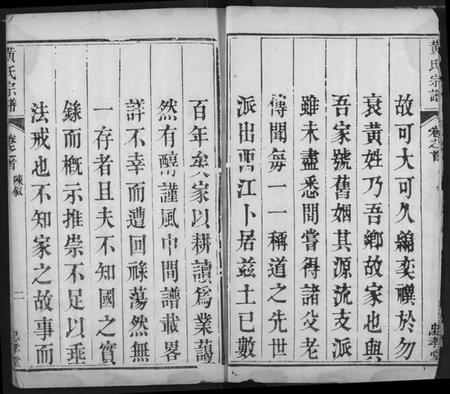 黃氏宗譜
卷之首
忠孝堂
故可大可久綿奕禩於勿
衰黃姓乃吾鄉故家也與
吾家號舊姻其源流支派
雖未盡悉間嘗得諸父老
傳聞每一一稱道之先世
派出西江卜居茲土已數
百年矣家以耕讀爲業藹
然有醇謹風中間譜載畧
詳不幸而遭回祿蕩然無
一存者且夫不知國之實
錄而概示推崇不足以垂
法戒也不知家之故事而
黃氏宗譜
卷之首
陳敘
二
忠孝堂